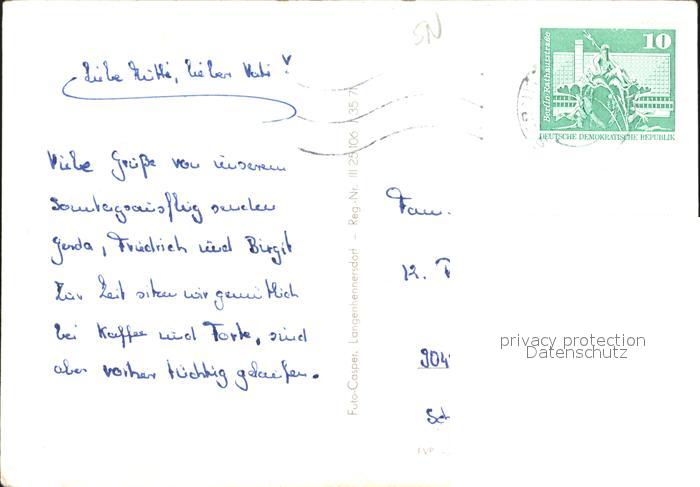 SN
Liebe Mutti, lieber Vati!
Viele Grüße von unserem
Sonntagsausflug senden
Gerda, Friedrich und Birgit
Zur Zeit sitzen wir gemütlich
bei Kaffee und Torte, sind
aber vorher tüchtig gelaufen.
Foto-Casper, Langenhennersdorf – Reg.-Nr. III 25 106 / 35 71
10
Berlin, Rathausstraße
DEUTSCHE DEMOKRATISCHE REPUBLIK
Fam.
12.
904
Sch
EVP
privacy protection
Datenschutz